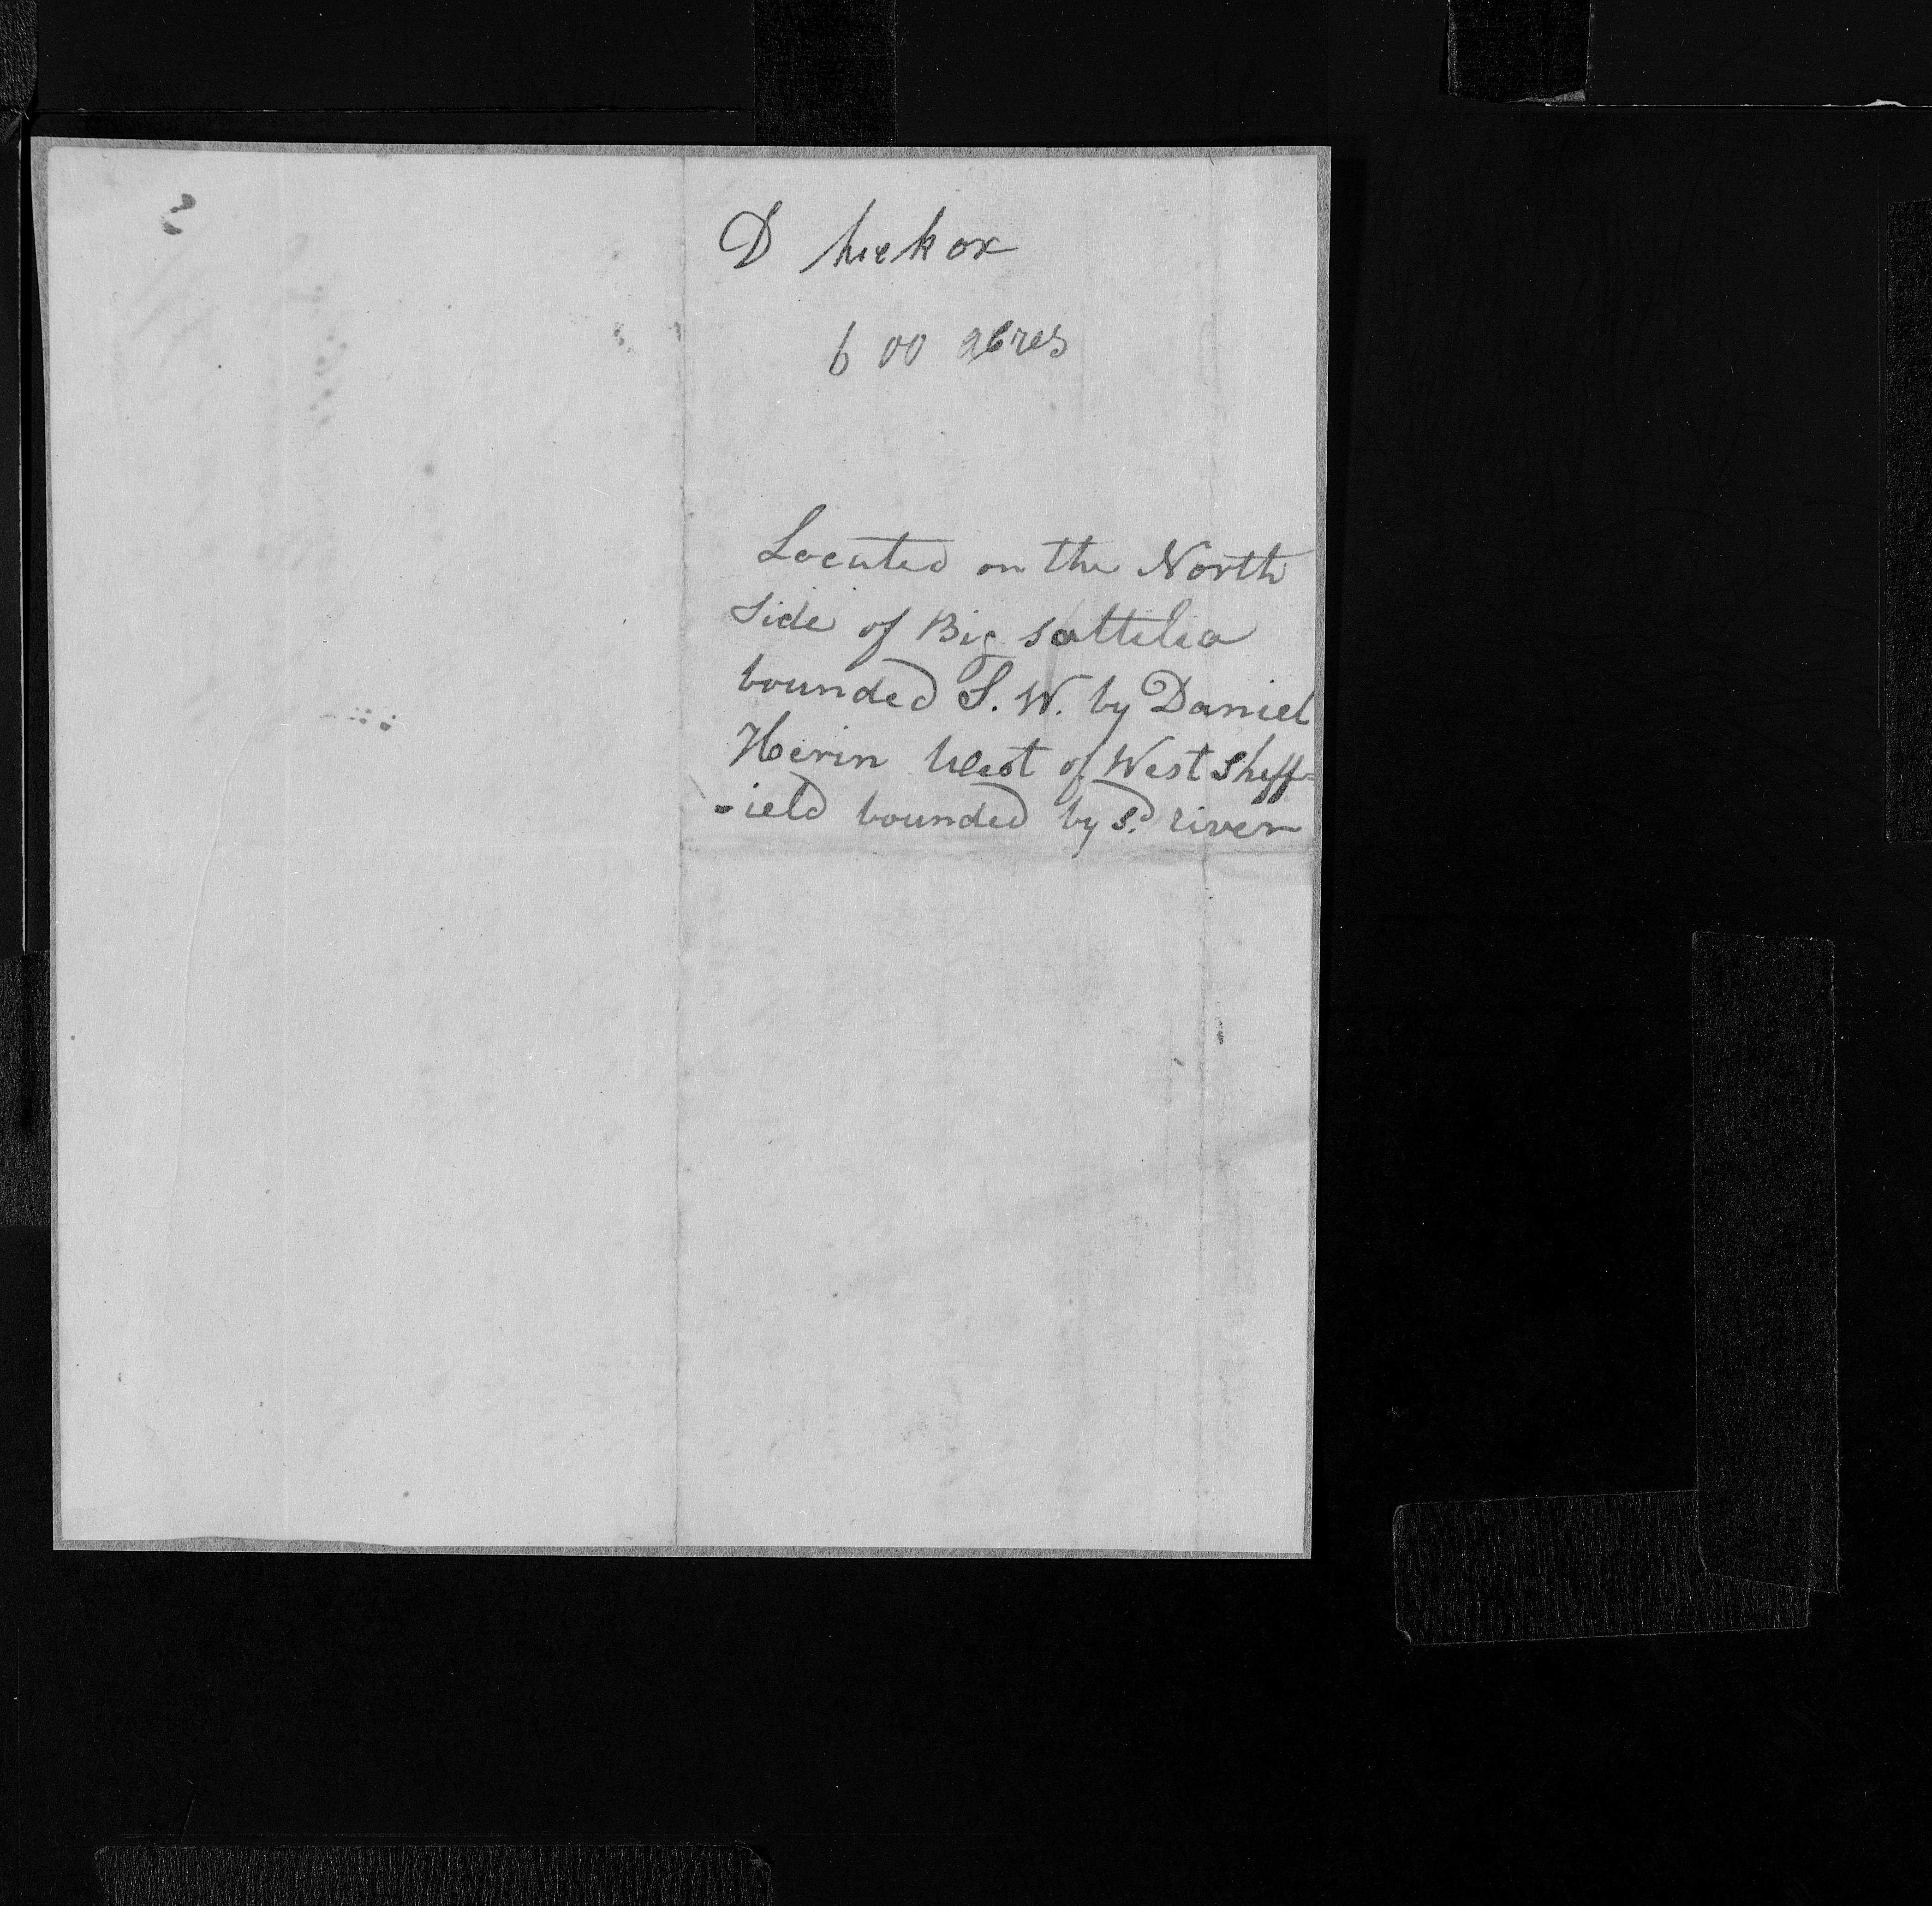 D hickox
600 acres
Located on the North
Side of Big sattilia
bounded S. W. by Daniel
Herrin West of West Sheff=
-ield bounded by sd. river